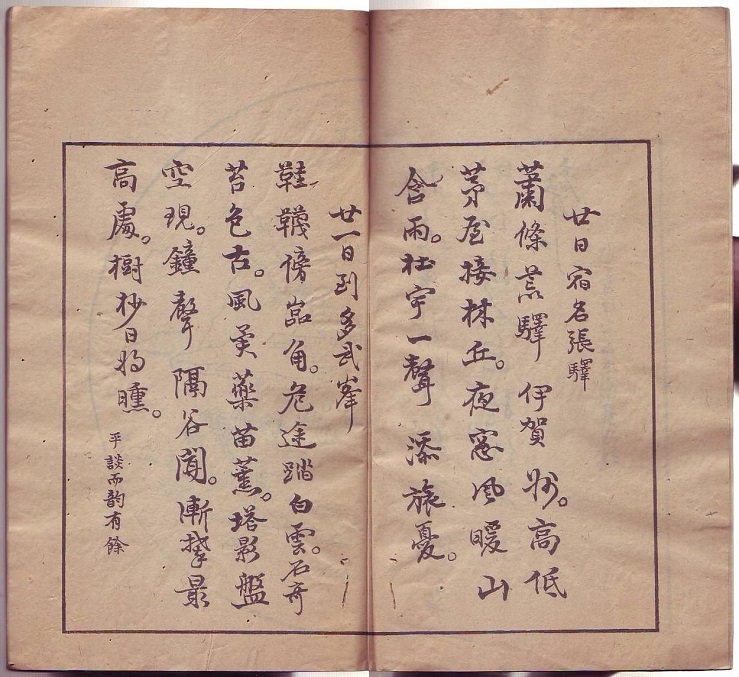 廿日宿名張驛
蕭條荒驛伊賀州。高低
茅屋接林丘。夜窓風暖山
含雨。杜宇一聲添旅憂。
廿一日到多武峯
鞋韈傍嵓角。危途踏白雲。石奇
苔色古。風美藥苗薫。塔影盤
空現。鐘聲隔谷聞。漸攀最
高處。樹杪日将曛。
平談而韵有餘